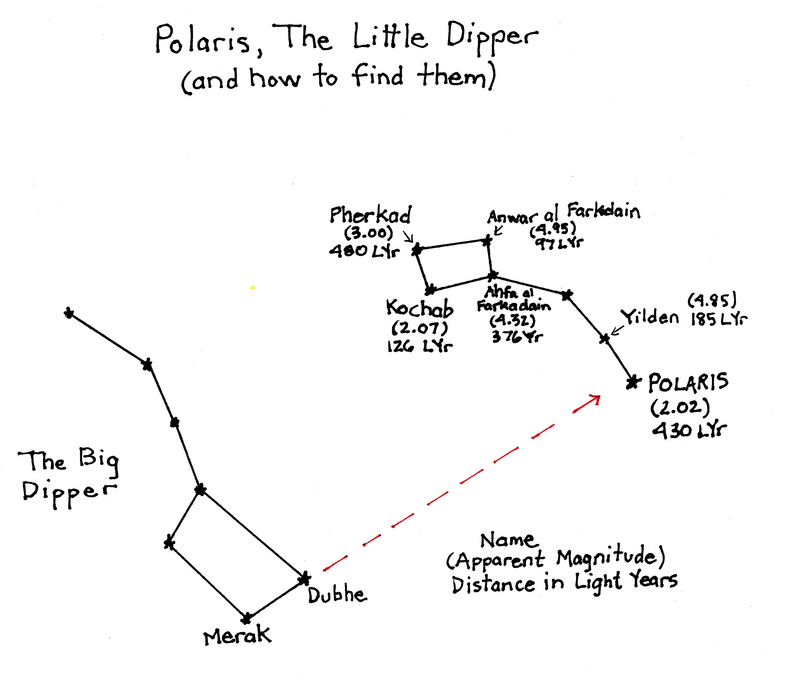 Polaris, The Little Dipper
(and how to find them)
Pherkad
(3.00)
480 LYr
Anwar al Farkdain
(4.95)
97 LYr
Kochab
(2.07)
126 LYr
Ahfa al
Farkadain
(4.32)
376 Yr
Yilden
(4.85)
185 LYr
POLARIS
(2.02)
430 LYr
The Big
Dipper
Dubhe
Merak
Name
(Apparent Magnitude)
Distance in Light Years